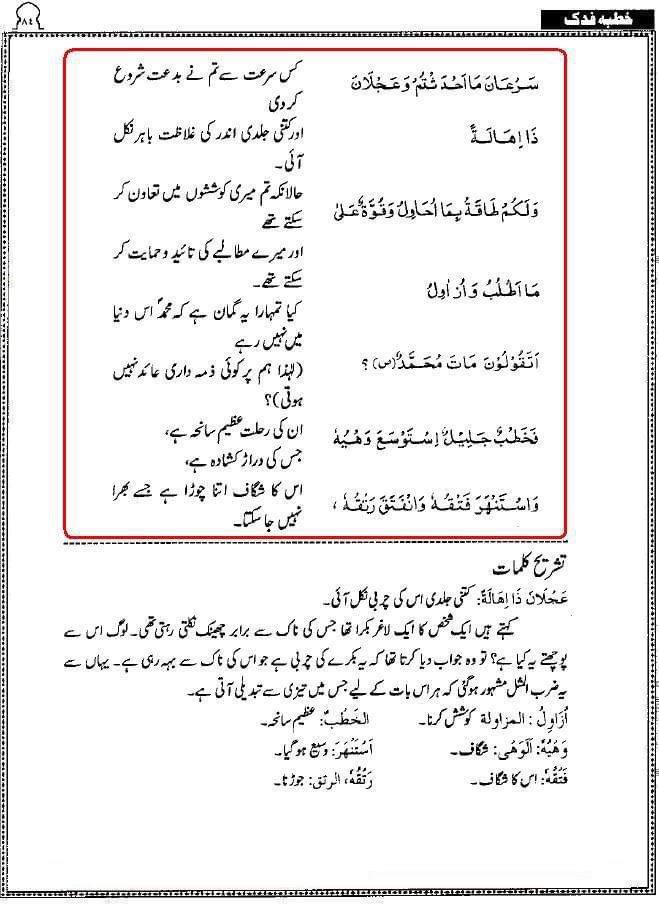 خطبہ فدک
۸۴
سَرْعَانَ مَا اَحْدَثْتُمْ وَعَجْلَانَ
کس سرعت سے تم نے بدعت شروع
کر دی
ذَا اِهَالَةً
اور کتنی جلدی اندر کی غلاظت باہر نکل
آئی۔
وَلَكُمْ طَاقَةٌ بِمَا اُحَاوِلُ وَقُوَّةٌ عَلىٰ
حالانکہ تم میری کوششوں میں تعاون کر
سکتے تھے
مَا اَطْلُبُ وَاُزَاوِلُ
اور میرے مطالبے کی تائید و حمایت کر
سکتے تھے۔
اَتَقُوْلُوْنَ مَاتَ مُحَمَّدٌ (ص) ؟
کیا تمہارا یہ گمان ہے کہ محمدؐ اس دنیا
میں نہیں رہے
(لہٰذا ہم پر کوئی ذمہ داری عائد نہیں
ہوتی)؟
فَخَطْبٌ جَلِيْلٌ اِسْتَوْسَعَ وَهْيُهٗ
ان کی رحلت عظیم سانحہ ہے،
جس کی دراڑ کشادہ ہے،
وَاسْتَنْهَرَ فَتْقُهٗ وَانْفَتَقَ رَتْقُهٗ ،
اس کا شگاف اتنا چوڑا ہے جسے بھرا
نہیں جا سکتا۔
تشریح کلمات
عَجْلَانَ ذَا اِهَالَةً: کتنی جلدی اس کی چربی نکل آئی۔
کہتے ہیں ایک شخص کا ایک لاغر بکرا تھا جس کی ناک سے برابر چھینک نکلتی رہتی تھی۔ لوگ اس سے
پوچھتے یہ کیا ہے؟ تو وہ جواب دیا کرتا تھا کہ یہ بکرے کی چربی ہے جو اس کی ناک سے بہہ رہی ہے۔ یہاں سے
یہ ضرب المثل مشہور ہوگئی کہ ہر اس بات کے لیے جس میں تیزی سے تبدیلی آتی ہے۔
اُزَاوِلُ: المزاولة کوشش کرنا۔ الخَطْبُ: عظیم سانحہ۔
وَهْيُهٗ: اَلْوَهْى: شگاف۔ اَسْتَنْهَرَ: وسیع ہوگیا۔
فَتْقُهٗ: اس کا شگاف۔ رَتْقُهٗ، الرتق: جوڑنا۔